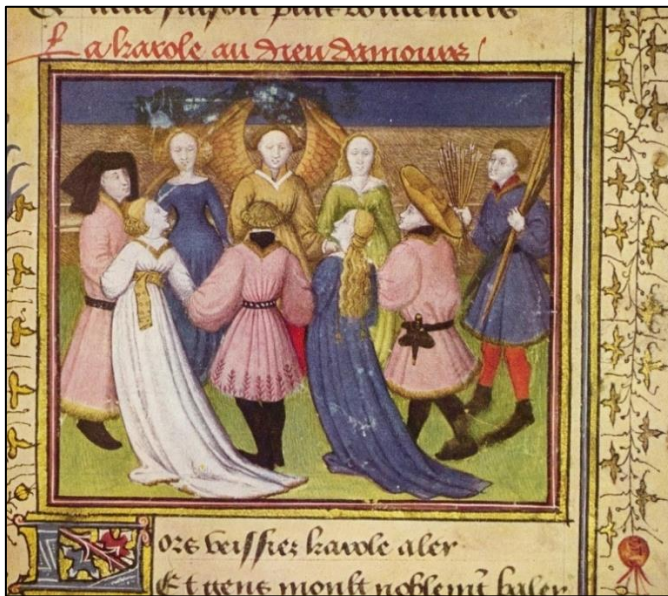 Et
La karole au dieu damours
Lors veissiez karole aler
Et gens moult noblemt̄ baler